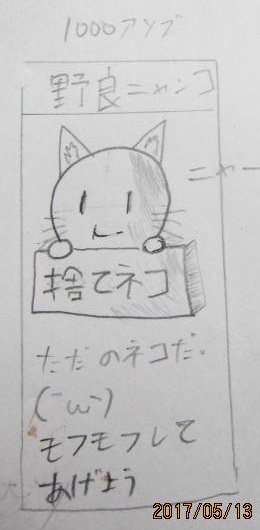 1000アンズ
野良ニャンコ
ニャー
捨てネコ
ただのネコだ。
(´ω`)
モフモフして
あげよう
2017/05/13